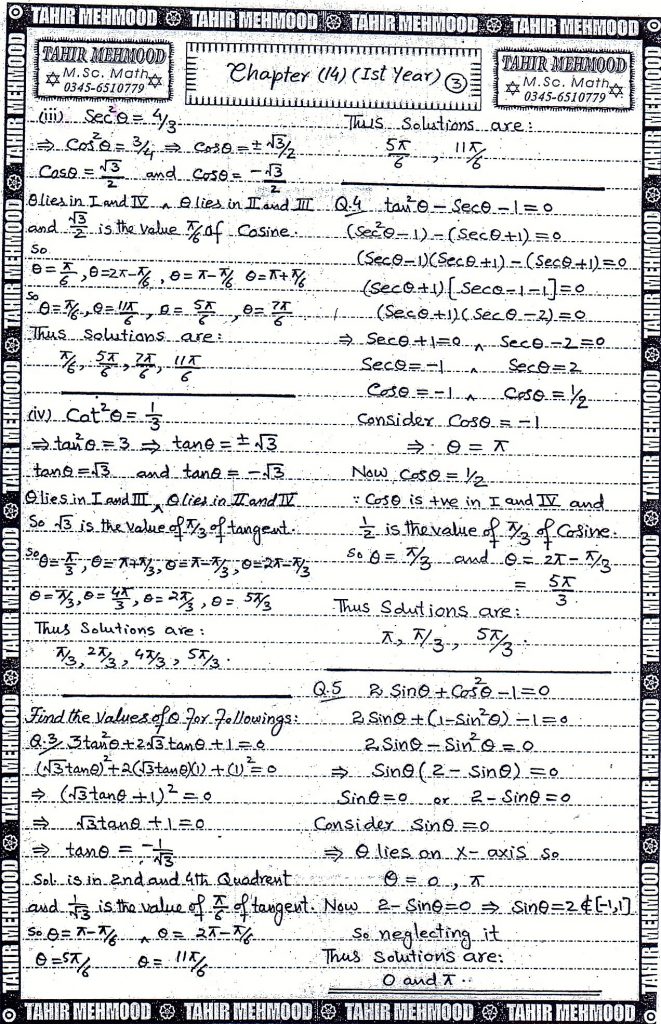 TAHIR MEHMOOD TAHIR MEHMOOD TAHIR MEHMOOD TAHIR MEHMOOD
TAHIR MEHMOOD
M.Sc. Math
0345-6510779
Chapter (14) (Ist Year) 3
TAHIR MEHMOOD
M.Sc. Math
0345-6510779
(iii) Sec²θ = 4/3
⇒ Cos²θ = 3/4 ⇒ Cosθ = ± √3/2
Cosθ = √3/2 and Cosθ = -√3/2
θ lies in I and IV ∧ θ lies in II and III
and √3/2 is the value π/6 of Cosine.
So
θ = π/6, θ = 2π-π/6, θ = π-π/6 θ = π+π/6
So θ = π/6, θ = 11π/6, θ = 5π/6, θ = 7π/6
Thus Solutions are:
π/6, 5π/6, 7π/6, 11π/6
(iv) Cot²θ = 1/3
⇒ tan²θ = 3 ⇒ tanθ = ± √3
tanθ = √3 and tanθ = -√3
θ lies in I and III ∧ θ lies in II and IV
So √3 is the value of π/3 of tangent.
So θ = π/3, θ = π+π/3, θ = π-π/3, θ = 2π-π/3
θ = π/3, θ = 4π/3, θ = 2π/3, θ = 5π/3
Thus Solutions are:
π/3, 2π/3, 4π/3, 5π/3.
Find the Values of θ for followings:
Q.3 3tan²θ + 2√3 tanθ + 1 = 0
(√3tanθ)² + 2(√3tanθ)(1) + (1)² = 0
⇒ (√3tanθ + 1)² = 0
⇒ √3tanθ + 1 = 0
⇒ tanθ = -1/√3
Sol. is in 2nd and 4th Quadrent
and 1/√3 is the value of π/6 of tangent.
So θ = π-π/6 ∧ θ = 2π-π/6
θ = 5π/6 θ = 11π/6
Thus Solutions are:
5π/6, 11π/6
Q.4 tan²θ - Secθ - 1 = 0
(Sec²θ - 1) - (Secθ + 1) = 0
(Secθ - 1)(Secθ + 1) - (Secθ + 1) = 0
(Secθ + 1)[Secθ - 1 - 1] = 0
(Secθ + 1)(Secθ - 2) = 0
⇒ Secθ + 1 = 0 ∧ Secθ - 2 = 0
Secθ = -1 ∧ Secθ = 2
Cosθ = -1 ∧ Cosθ = 1/2
Consider Cosθ = -1
⇒ θ = π
Now Cosθ = 1/2
∵ Cosθ is +ve in I and IV and
1/2 is the value of π/3 of Cosine.
So θ = π/3 and θ = 2π - π/3
= 5π/3
Thus Solutions are:
π, π/3, 5π/3.
Q.5 2 Sinθ + Cos²θ - 1 = 0
2 Sinθ + (1 - Sin²θ) - 1 = 0
2 Sinθ - Sin²θ = 0
⇒ Sinθ (2 - Sinθ) = 0
Sinθ = 0 or 2 - Sinθ = 0
Consider Sinθ = 0
⇒ θ lies on X-axis So
θ = 0, π
Now 2 - Sinθ = 0 ⇒ Sinθ = 2 ∉ [-1,1]
So neglecting it
Thus Solutions are:
0 and π..
TAHIR MEHMOOD TAHIR MEHMOOD TAHIR MEHMOOD TAHIR MEHMOOD
TAHIR MEHMOOD TAHIR MEHMOOD TAHIR MEHMOOD TAHIR MEHMOOD TAHIR MEHMOOD TAHIR MEHMOOD
TAHIR MEHMOOD TAHIR MEHMOOD TAHIR MEHMOOD TAHIR MEHMOOD TAHIR MEHMOOD TAHIR MEHMOOD